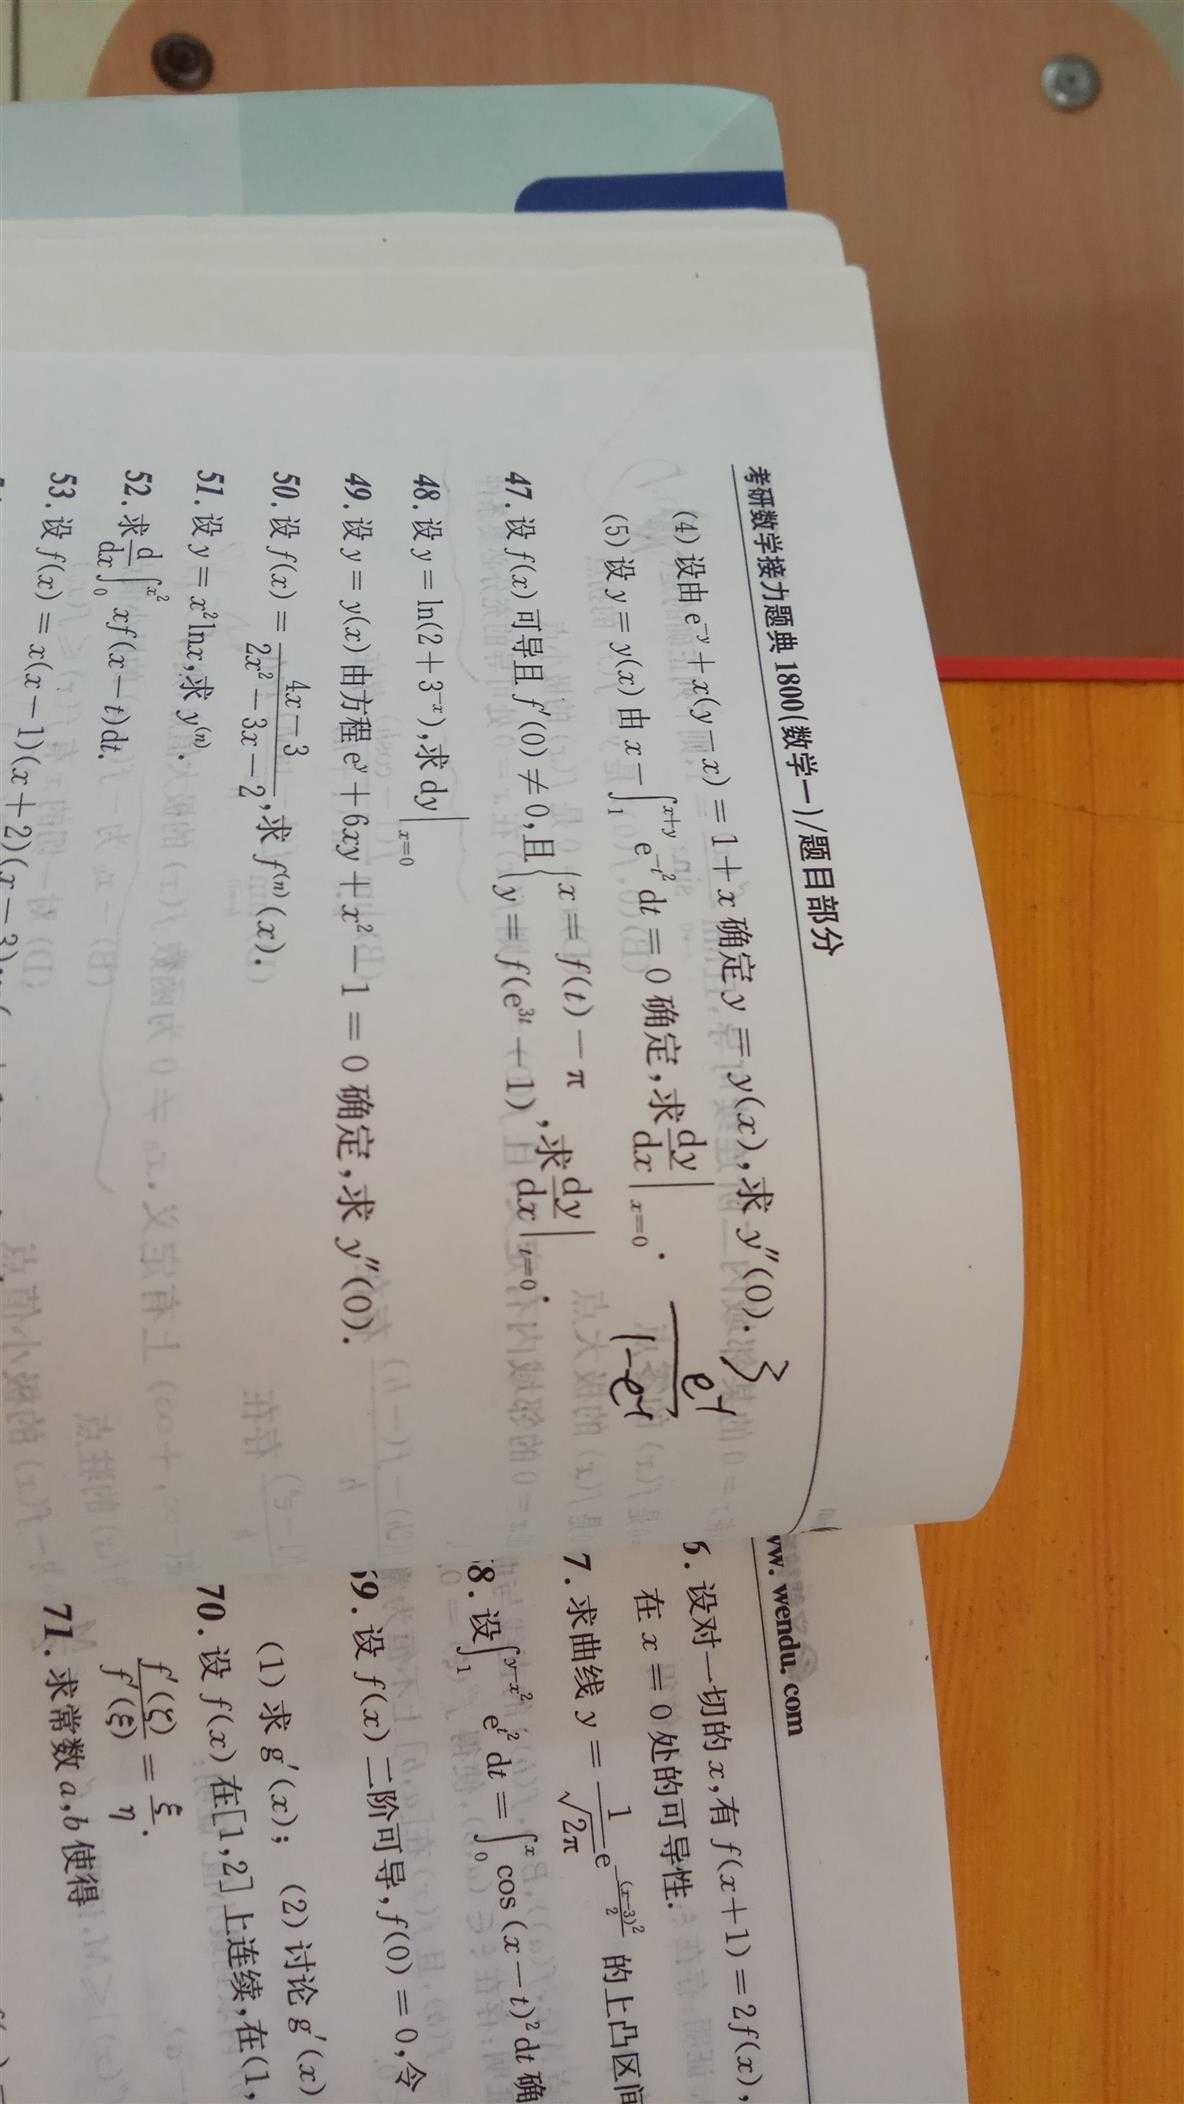 考研数学接力题典1800(数学一)/题目部分
(4) 设由 e⁻ʸ + x(y − x) = 1 + x 确定 y = y(x), 求 y″(0). 3
(5) 设 y = y(x) 由 x − ∫₁ˣ⁺ʸ e^(−t²) dt = 0 确定, 求 dy/dx |ₓ₌₀.
47. 设 f(x) 可导且 f′(0) ≠ 0, 且 { x = f(t) − π
y = f(e³ᵗ − 1) , 求 dy/dx |ₜ₌₀.
48. 设 y = ln(2 + 3⁻ˣ), 求 dy |ₓ₌₀
49. 设 y = y(x) 由方程 eʸ + 6xy + x² − 1 = 0 确定, 求 y″(0).
50. 设 f(x) = (4x − 3)/(2x² − 3x − 2), 求 f⁽ⁿ⁾(x).
51. 设 y = x²lnx, 求 y⁽ⁿ⁾.
52. 求 d/dx ∫₀^(x²) xf(x − t)dt.
53. 设 f(x) = x(x − 1)(x + 2)(x − 3)
www.wendu.com
6. 设对一切的 x, 有 f(x + 1) = 2f(x),
在 x = 0 处的可导性.
7. 求曲线 y = 1/√(2π) e^(−(x−3)²/2) 的上凸区间
8. 设 ∫₁^(y−x²) e^(t²) dt = ∫₀ˣ cos(x − t)² dt 确
9. 设 f(x) 二阶可导, f(0) = 0, 令
(1) 求 g′(x); (2) 讨论 g′(x)
70. 设 f(x) 在[1,2]上连续, 在(1,
f′(ζ)/f′(ξ) = ξ/η.
71. 求常数 a,b 使得